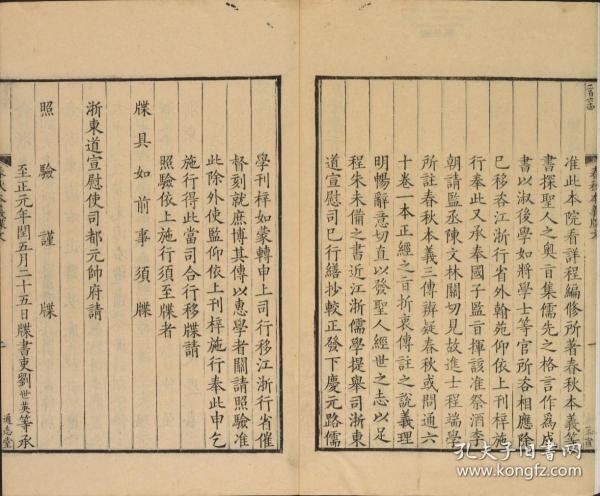 准此本院看詳程編修所著春秋本義等
書探聖人之奧旨集儒先之格言作為成
書以淑後學如將學士等官所咨相應除
已移咨江浙行省外翰苑仰依上刊梓施
行奉此又承奉國子監旨揮該准祭酒李
朝請監丞陳文林關切見故進士程端學
所註春秋本義三傳辯疑春秋或問通六
十卷一本正經之旨折衷傳註之說義理
明暢辭意切直以發聖人經世之志以足
程朱未備之書近江浙儒學提舉司浙東
道宣慰司已行繕抄較正發下慶元路儒
學刊梓如蒙轉申上司行移江浙行省催
督刻就庶博其傳以惠學者關請照驗准
此除外使監仰依上刊梓施行奉此申乞
施行得此當司合行移牒請
照驗依上施行須至牒者
牒具如前事須牒
浙東道宣慰使司都元帥府請
照驗謹牒
至正元年閏五月二十五日牒書吏劉世英等承
通志堂
孔夫子旧书网
www.kongfz.com